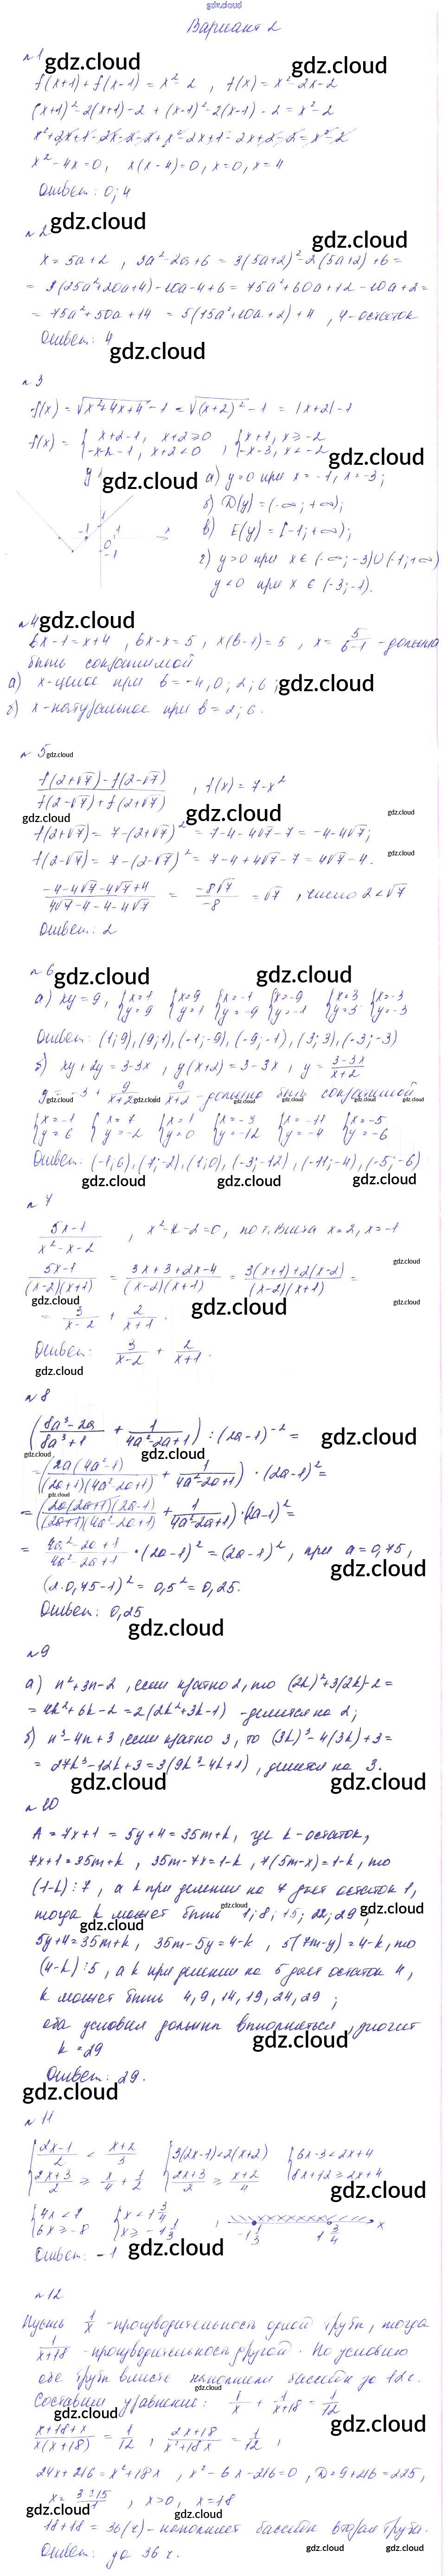 gdz.cloud
Вариант 2
№1 gdz.cloud gdz.cloud
f(x+1) + f(x-1) = x² - 2 , f(x) = x² - 2x - 2
(x+1)² - 2(x+1) - 2 + (x-1)² - 2(x-1) - 2 = x² - 2
x² + 2x + 1 - 2x - 2 - 2 + x² - 2x + 1 - 2x + 2 - 2 = x² - 2
x² - 4x = 0, x(x-4) = 0, x = 0, x = 4
Ответ: 0; 4
№2 gdz.cloud gdz.cloud
x = 5a + 2 , 3a² - 2a + 6 = 3(5a+2)² - 2(5a+2) + 6 =
= 3(25a² + 20a + 4) - 10a - 4 + 6 = 75a² + 60a + 12 - 10a + 2 =
= 75a² + 50a + 14 = 5(15a² + 10a + 2) + 4 , 4 - остаток
Ответ: 4
gdz.cloud
№3
f(x) = √(x² + 4x + 4) - 1 = √((x+2)²) - 1 = |x+2| - 1
f(x) = { x+2-1, x+2 ≥ 0 , { x+1, x ≥ -2
-x-2-1, x+2 < 0 -x-3, x < -2
gdz.cloud
y gdz.cloud а) y = 0 при x = -1, x = -3;
б) D(y) = (-∞; +∞);
в) E(y) = [-1; +∞);
г) y > 0 при x ∈ (-∞; -3) ∪ (-1; +∞)
y < 0 при x ∈ (-3; -1).
№4 gdz.cloud
bx - 1 = x + 4 , bx - x = 5 , x(b-1) = 5 , x = 5/(b-1) - должна
быть сократимой
а) x - целое при b = -4, 0; 2; 6; gdz.cloud
б) x - натуральное при b = 2; 6.
№5 gdz.cloud
(f(2+√7) - f(2-√7))/(f(2-√7) + f(2+√7)) , f(x) = 7 - x²
gdz.cloud gdz.cloud gdz.cloud
f(2+√7) = 7 - (2+√7)² = 7 - 4 - 4√7 - 7 = -4 - 4√7;
f(2-√7) = 7 - (2-√7)² = 7 - 4 + 4√7 - 7 = 4√7 - 4. gdz.cloud
(-4-4√7-4√7+4)/(4√7-4-4-4√7) = (-8√7)/(-8) = √7 , число 2 < √7
Ответ: 2
№6 gdz.cloud gdz.cloud
а) xy = 9, { x=1 { x=9 { x=-1 { x=-9 { x=3 { x=-3
y=9 y=1 y=-9 y=-1 y=3 y=-3
Ответ: (1; 9), (9; 1), (-1; -9), (-9; -1), (3; 3), (-3; -3)
б) xy + 2y = 3 - 3x , y(x+2) = 3 - 3x , y = (3-3x)/(x+2)
y = -3 + 9/(x+2) , 9/(x+2) - должно быть сократимой
gdz.cloud gdz.cloud gdz.cloud gdz.cloud gdz.cloud gdz.cloud
{ x=-1 { x=7 { x=1 { x=-3 { x=-11 { x=-5
y=6 y=-2 y=0 y=-12 y=-4 y=-6
Ответ: (-1; 6), (7; -2), (1; 0), (-3; -12), (-11; -4), (-5; -6)
gdz.cloud gdz.cloud gdz.cloud
№7
(5x-1)/(x²-x-2) , x² - x - 2 = 0 , по т. Виета x = 2, x = -1
gdz.cloud
(5x-1)/((x-2)(x+1)) = (3x+3+2x-4)/((x-2)(x+1)) = (3(x+1)+2(x-2))/((x-2)(x+1)) =
gdz.cloud gdz.cloud gdz.cloud
= 3/(x-2) + 2/(x+1) .
Ответ: 3/(x-2) + 2/(x+1) .
gdz.cloud
№8
((8a³-2a)/(8a³+1) + 1/(4a²-2a+1)) : (2a-1)⁻² = gdz.cloud
gdz.cloud gdz.cloud
= ((2a(4a²-1))/((2a+1)(4a²-2a+1)) + 1/(4a²-2a+1)) · (2a-1)² =
gdz.cloud
= ((2a(2a+1)(2a-1))/((2a+1)(4a²-2a+1)) + 1/(4a²-2a+1)) · (2a-1)² =
= (4a²-2a+1)/(4a²-2a+1) · (2a-1)² = (2a-1)² , при a = 0,75,
gdz.cloud
(2·0,75-1)² = 0,5² = 0,25.
Ответ: 0,25
gdz.cloud
№9
а) n² + 3n - 2 , если кратно 2, то (2k)² + 3(2k) - 2 =
= 4k² + 6k - 2 = 2(2k² + 3k - 1) - делится на 2;
б) n³ - 4n + 3 , если кратно 3, то (3k)³ - 4(3k) + 3 =
= 27k³ - 12k + 3 = 3(9k³ - 4k + 1) , делится на 3.
gdz.cloud gdz.cloud
№10
A = 7x + 1 = 5y + 4 = 35m + k, где k - остаток,
7x + 1 = 35m + k , 35m - 7x = 1 - k , 7(5m - x) = 1 - k, то
(1-k) ⋮ 7 , а k при делении на 7 даёт остаток 1,
тогда k может быть 1; 8; 15; 22; 29 ,
gdz.cloud gdz.cloud gdz.cloud
5y + 4 = 35m + k, 35m - 5y = 4 - k , 5(7m - y) = 4 - k, то
(4-k) ⋮ 5 , а k при делении на 5 даёт остаток 4,
k может быть 4, 9, 14, 19, 24, 29 ;
оба условия должны выполняться, значит
k = 29 gdz.cloud
Ответ: 29.
gdz.cloud
№11
{ (2x-1)/2 < (x+2)/3 { 3(2x-1) < 2(x+2) { 6x-3 < 2x+4
(2x+3)/2 ≥ x/4 + 1/2 (2x+3)/2 ≥ (x+2)/4 8x+12 ≥ 2x+4
gdz.cloud
{ 4x < 7 { x < 1 3/4 , x
6x ≥ -8 x ≥ -1 1/3 -1 1/3 1 3/4
Ответ: -1 gdz.cloud
№12
Пусть 1/x - производительность одной трубы, тогда
1/(x+18) - производительность другой. По условию
обе трубы вместе наполнили бассейн за 12 ч.
gdz.cloud
Составим уравнение: 1/x + 1/(x+18) = 1/12
gdz.cloud gdz.cloud
(x+18+x)/(x(x+18)) = 1/12 , (2x+18)/(x²+18x) = 1/12 ,
24x + 216 = x² + 18x , x² - 6x - 216 = 0 , D = 9 + 216 = 225,
x = (3±15)/1 , x > 0, x = 18
gdz.cloud gdz.cloud
18 + 18 = 36 (ч) - наполняет бассейн вторая труба.
Ответ: за 36 ч. gdz.cloud gdz.cloud